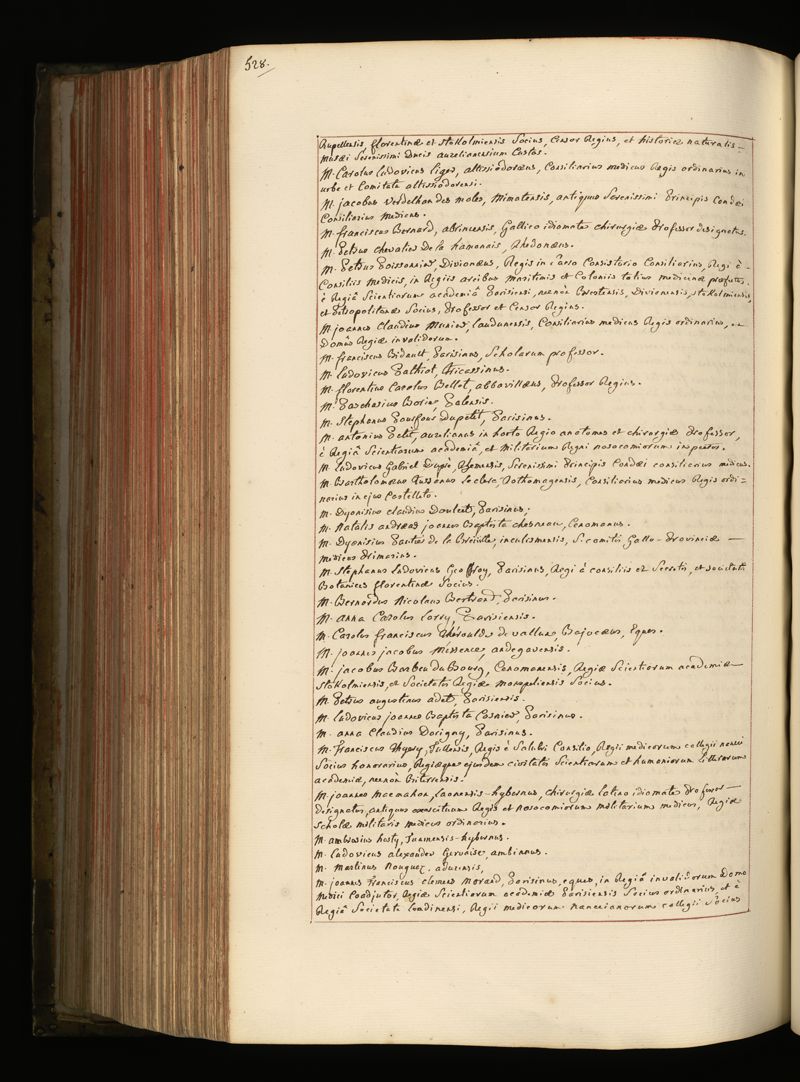 528.
Rupellensis, florentinæ et stokolmiensis Socius, Censor Regius, et historiæ naturalis =
Musæi Serenissimi Ducis aurelianensium Custos.
M. Carolus ludovicus liger, altissiodoræus, Consiliarius medicus Regis ordinarius in
urbe et Comitatu altissiodorensi.
M. jacobus verdelhan des moles, Mimatensis, antiquus Serenissimi Principis Condæi
Consiliarius Medicus.
M. franciscus Bernard, abrincensis, Gallico idiomate chirurgiæ Professor designatus.
M. Petrus chevalier De la hamonais, Rhedonæus.
M. Petrus Poissonnier, Divionæus, Regis in Consistorio Consiliarius, Regi è -
Consiliis Medicis, in Regiis arcibus Maritimis et Coloniis totius medicinæ præfectus,
è Regiâ Scientiarum academiâ Parisiensi, necnòn Divionensis, stokolmiensis,
et Petropolitanæ Socius, Professor et Censor Regius.
M. joannes Claudius Munier, laudunensis, Consiliarius medicus Regis ordinarius,
Domûs Regiæ invalidorum.
M. franciscus Bidault, Parisinus, Scholarum professor.
M. ludovicus Pathiot, Tricassinus.
M. florentius Carolus Bellot, abbavillæus, Professor Regius.
M. Paschasius Borie
M. Stephanus Pourfour Dupetit, Parisinus.
M. antonius Petit, aurelianus in horto Regio anatomes et chirurgiæ Professor,
è Regiâ Scientiarum academiâ, et Militarium Regni nosocomiorum inspector.
M. ludovicus Gabriel Dupré, Rhemensis, Serenissimi Principis Condæi consiliarius medicus.
M. Bartholomæus Le clerc, Rothomagensis, Consiliarius medicus Regis ordi=
narius in ejus Castelleto.
M. Dyonisius claudius Doulcet, Parisinus.
M. Natalis andræas joannes Baptista chesneau, Cenomanus.
M. Dyonisius Pautier de la Breuille, inculismensis, Comitis Gallo-Provinciæ —
medicus Primarius.
M. Stephanus ludovicus Geoffroy, Parisinus, Regi à consiliis et Secretis, et societatis
Botanices florentinæ Socius.
M. Bernardus Nicolaus Bertrand, Parisinus.
M. anna Carolus lorry, Parisiensis.
M. Carolus franciscus Théroulde de vallun, Bajocæus, Eques.
M. joannes jacobus Messence, andegavensis.
M. jacobus Barbeu du Bourg, Cenomanensis, Regiæ Scientiarum academiæ —
stokolmiensis, et Societatis Regiæ Monspeliensis Socius.
M. Petrus augustinus adet, Parisiensis.
M. ludovicus joannes Baptista Cosnier Parisinus.
M. anna Claudius Dorigny, Parisinus.
M. Franciscus Thyery, Tullensis, Regis è Salubri Consilio, Regii medicorum collegii
Socius honorarius, Regiæque ejusdem civitatis Scientiarum et humaniorum litterarum
academiæ, necnòn Biterrensis.
M. joannes Macmahon, laonensis-hybernus, chirurgiæ latino idiomate Professor —
designatus, antiquus exercituum Regis et nosocomiorum militarium medicus, Regiæ
Scholæ militaris medicus ordinarius.
M. ambrosius hosty, Tuamensis-hybernus.
M. ludovicus alexander Gervaise, ambianus.
M. Martinus Nouguez, adurensis,
M. joannes franciscus clemens Morand, Parisinus, eques, in Regiâ invalidorum Domo
Medici Coadjutor, Regiæ Scientiarum academiæ Parisiensis Socius ordinarius, et è
Regiâ Societate londinensi, Regii medicorum Nanceianorum collegii Socius